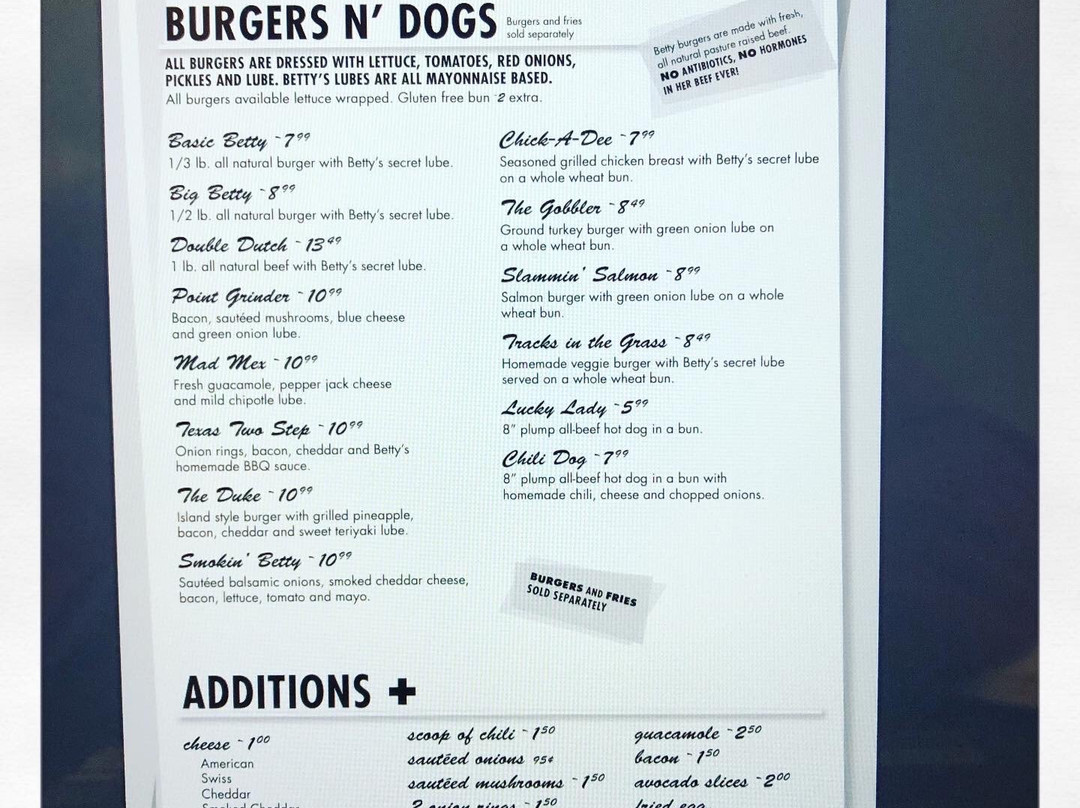 BURGERS N' DOGS
Burgers and fries
sold separately
Betty burgers are made with fresh,
all natural pasture raised beef.
NO ANTIBIOTICS, NO HORMONES
IN HER BEEF EVER!
ALL BURGERS ARE DRESSED WITH LETTUCE, TOMATOES, RED ONIONS,
PICKLES AND LUBE. BETTY'S LUBES ARE ALL MAYONNAISE BASED.
All burgers available lettuce wrapped. Gluten free bun ~2 extra.
Basic Betty ~7⁹⁹
1/3 lb. all natural burger with Betty's secret lube.
Big Betty ~8⁹⁹
1/2 lb. all natural burger with Betty's secret lube.
Double Dutch ~13⁴⁹
1 lb. all natural beef with Betty's secret lube.
Point Grinder ~10⁹⁹
Bacon, sautéed mushrooms, blue cheese
and green onion lube.
Mad Mex ~10⁹⁹
Fresh guacamole, pepper jack cheese
and mild chipotle lube.
Texas Two Step ~10⁹⁹
Onion rings, bacon, cheddar and Betty's
homemade BBQ sauce.
The Duke ~10⁹⁹
Island style burger with grilled pineapple,
bacon, cheddar and sweet teriyaki lube.
Smokin' Betty ~10⁹⁹
Sautéed balsamic onions, smoked cheddar cheese,
bacon, lettuce, tomato and mayo.
Chick-A-Dee ~7⁹⁹
Seasoned grilled chicken breast with Betty's secret lube
on a whole wheat bun.
The Gobbler ~8⁴⁹
Ground turkey burger with green onion lube on
a whole wheat bun.
Slammin' Salmon ~8⁹⁹
Salmon burger with green onion lube on a whole
wheat bun.
Tracks in the Grass ~8⁴⁹
Homemade veggie burger with Betty's secret lube
served on a whole wheat bun.
Lucky Lady ~5⁹⁹
8" plump all-beef hot dog in a bun.
Chili Dog ~7⁹⁹
8" plump all-beef hot dog in a bun with
homemade chili, cheese and chopped onions.
BURGERS AND FRIES
SOLD SEPARATELY
ADDITIONS +
cheese ~1⁰⁰
American
Swiss
Cheddar
Smoked Cheddar
scoop of chili ~1⁵⁰
sautéed onions 95¢
sautéed mushrooms ~1⁵⁰
2 onion rings ~1⁵⁰
guacamole ~2⁵⁰
bacon ~1⁵⁰
avocado slices ~2⁰⁰
fried egg